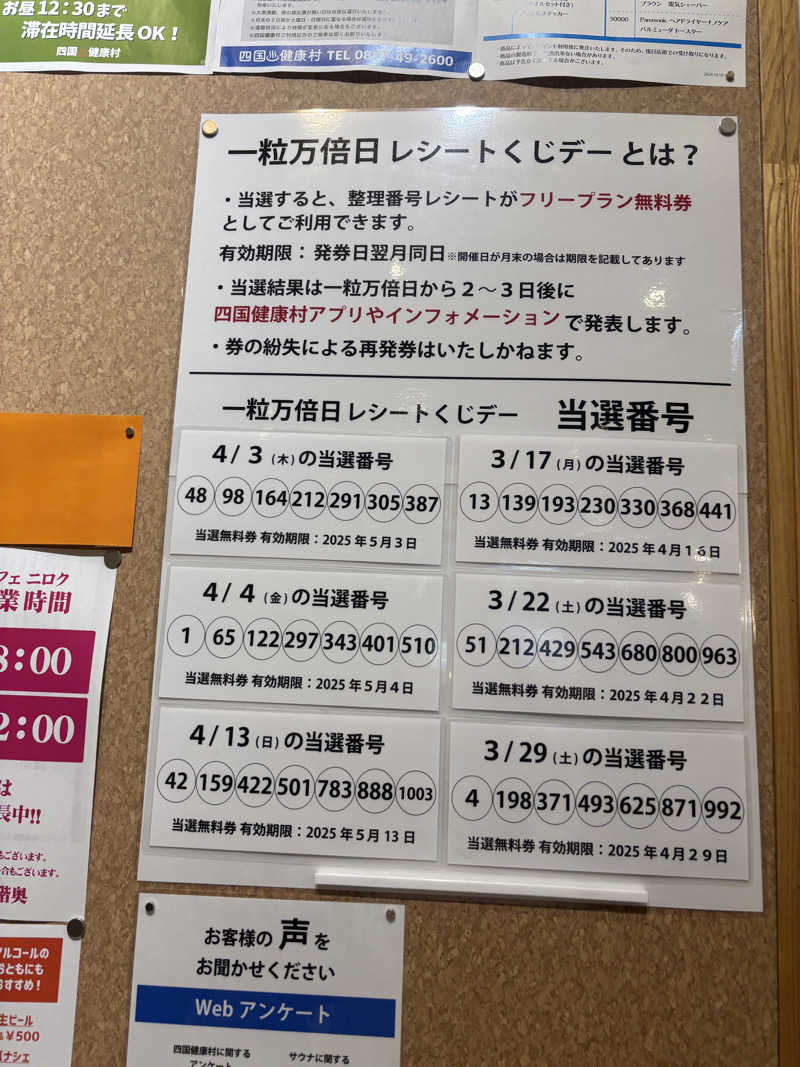 お昼12:30まで
滞在時間延長OK！
四国　健康村
四国健康村 TEL
一粒万倍日 レシートくじデー とは？
・当選すると、整理番号レシートがフリープラン無料券
としてご利用できます。
有効期限：発券日翌月同日※開催日が月末の場合は期限を記載してあります
・当選結果は一粒万倍日から２～３日後に
四国健康村アプリやインフォメーション で発表します。
・券の紛失による再発券はいたしかねます。
一粒万倍日 レシートくじデー　当選番号
4/3（木）の当選番号
48 98 164 212 291 305 387
当選無料券 有効期限：2025年５月３日
3/17（月）の当選番号
13 139 193 230 330 368 441
当選無料券 有効期限：2025年４月１６日
4/4（金）の当選番号
1 65 122 297 343 401 510
当選無料券 有効期限：2025年５月４日
3/22（土）の当選番号
51 212 429 543 680 800 963
当選無料券 有効期限：2025年４月２２日
4/13（日）の当選番号
42 159 422 501 783 888 1003
当選無料券 有効期限：2025年５月13日
3/29（土）の当選番号
4 198 371 493 625 871 992
当選無料券 有効期限：2025年４月２９日
フェ ニロク
業時間
8:00
2:00
は
長中!!
もございます。
合もございます。
階奥
アルコールの
おともにも
おすすめ！
生ビール
¥500
バナシェ
お客様の 声 を
お聞かせください
Web アンケート
四国健康村に関する
アンケート
サウナに関する
50000
Panasonic ヘアドライヤーナノケア
バルミューダ トースター
ブラウン　電気シェーバー